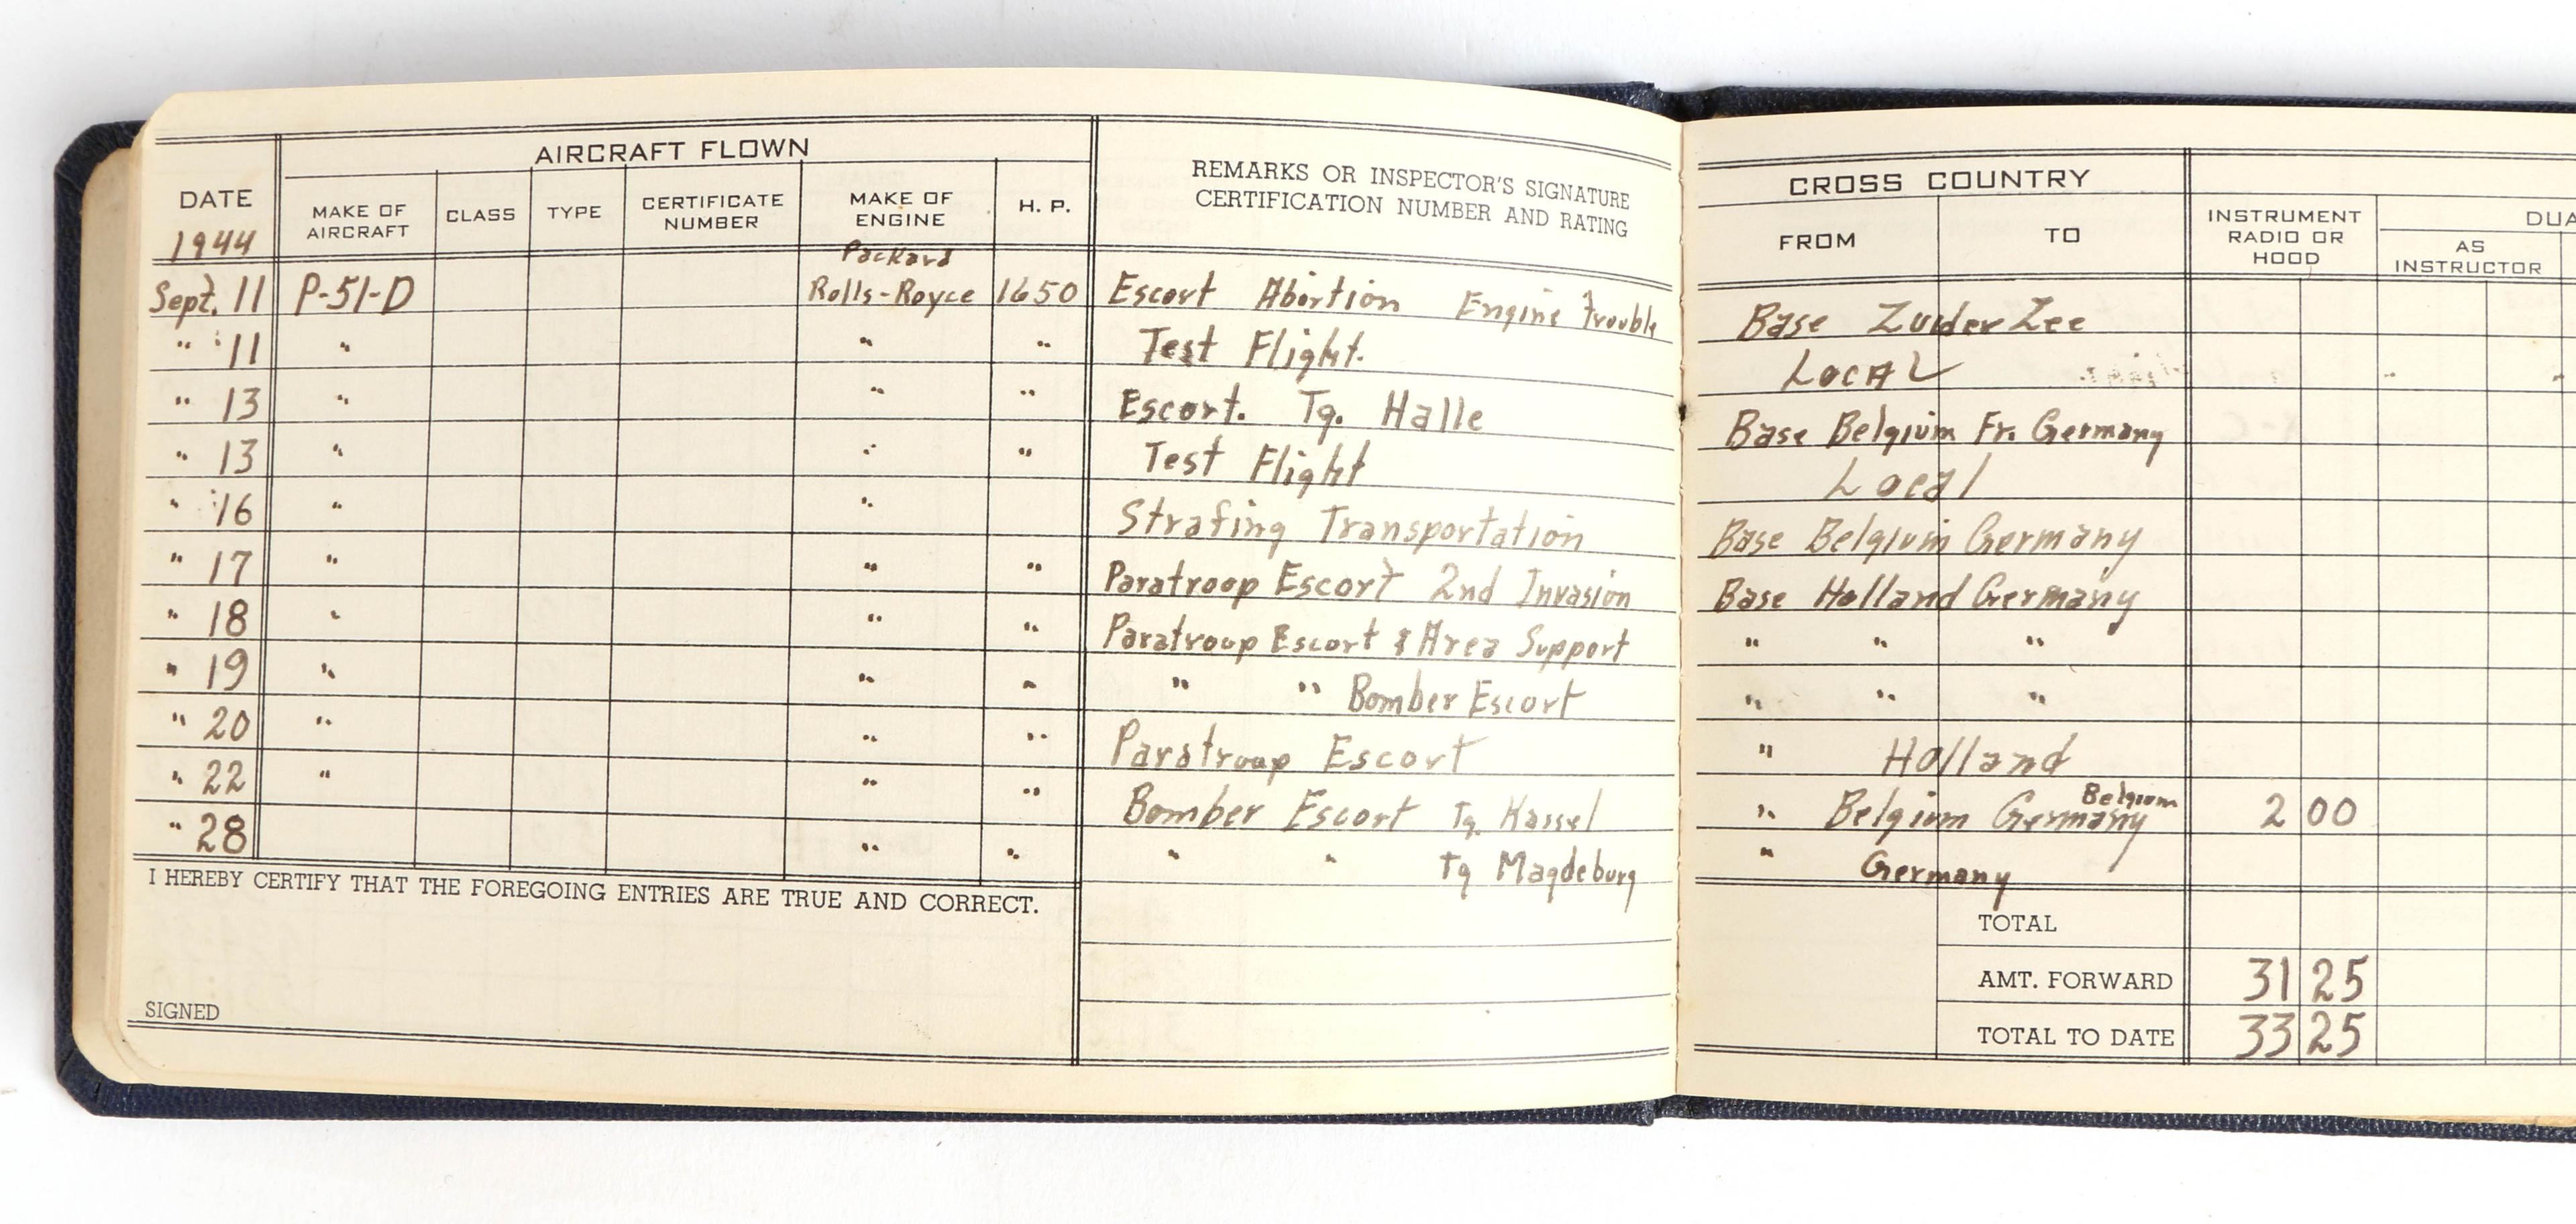 AIRCRAFT FLOWN
REMARKS OR INSPECTOR'S SIGNATURE
CERTIFICATION NUMBER AND RATING
DATE
MAKE OF AIRCRAFT CLASS TYPE CERTIFICATE NUMBER MAKE OF ENGINE H. P.
CROSS COUNTRY
FROM TO
INSTRUMENT RADIO OR HOOD
DUA
AS INSTRUCTOR
1944
Packard
Sept. 11 P-51-D Rolls-Royce 1650 Escort Abortion Engine Trouble Base Zuider Zee
" 11 " " " Test Flight. Local
" 13 " " " Escort. Tg. Halle Base Belgium Fr. Germany
" 13 " " " Test Flight Local
" 16 " " Strafing Transportation Base Belgium Germany
" 17 " " " Paratroop Escort 2nd Invasion Base Holland Germany
" 18 " " " Paratroup Escort & Area Support " " "
" 19 " " " " " Bomber Escort " " "
" 20 " " " Paratroup Escort " Holland
" 22 " " " Bomber Escort Tg. Kassel " Belgium Germany Belgium 2 00
" 28 " " " " Tg Magdeburg " Germany
I HEREBY CERTIFY THAT THE FOREGOING ENTRIES ARE TRUE AND CORRECT.
SIGNED
TOTAL
AMT. FORWARD 31 25
TOTAL TO DATE 33 25